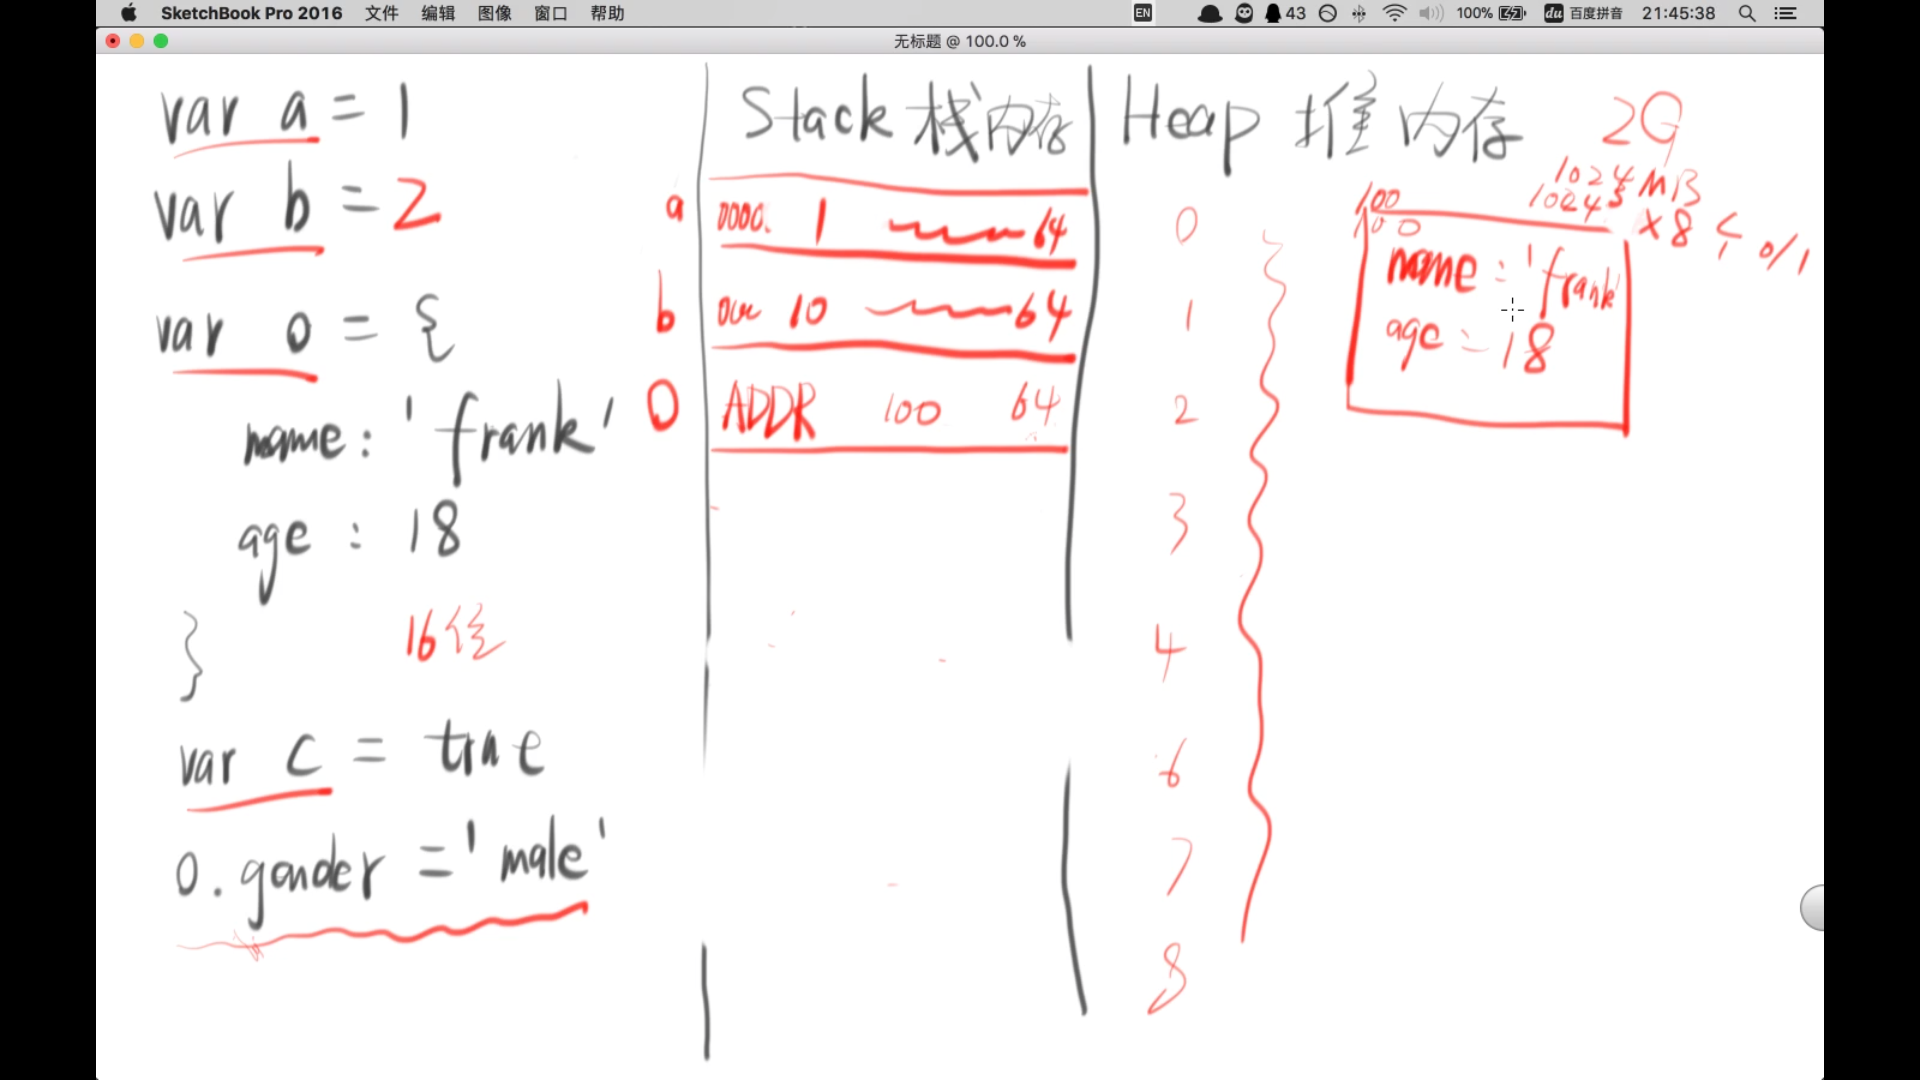 SketchBook Pro 2016 文件 编辑 图像 窗口 帮助 EN 43 100% du 百度拼音 21:45:38
无标题 @ 100.0 %
var a = 1
var b = 2
var o = {
name: 'frank'
age : 18
}
16位
var c = true
o.gender = 'male'
Stack 栈内存
a 0000. 1 64
b 10 64
O ADDR 100 64
Heap 堆内存
2G
1024 MB
1024
×8 0/1
100
100
name : 'frank'
age : 18
0
1
2
3
4
6
7
8